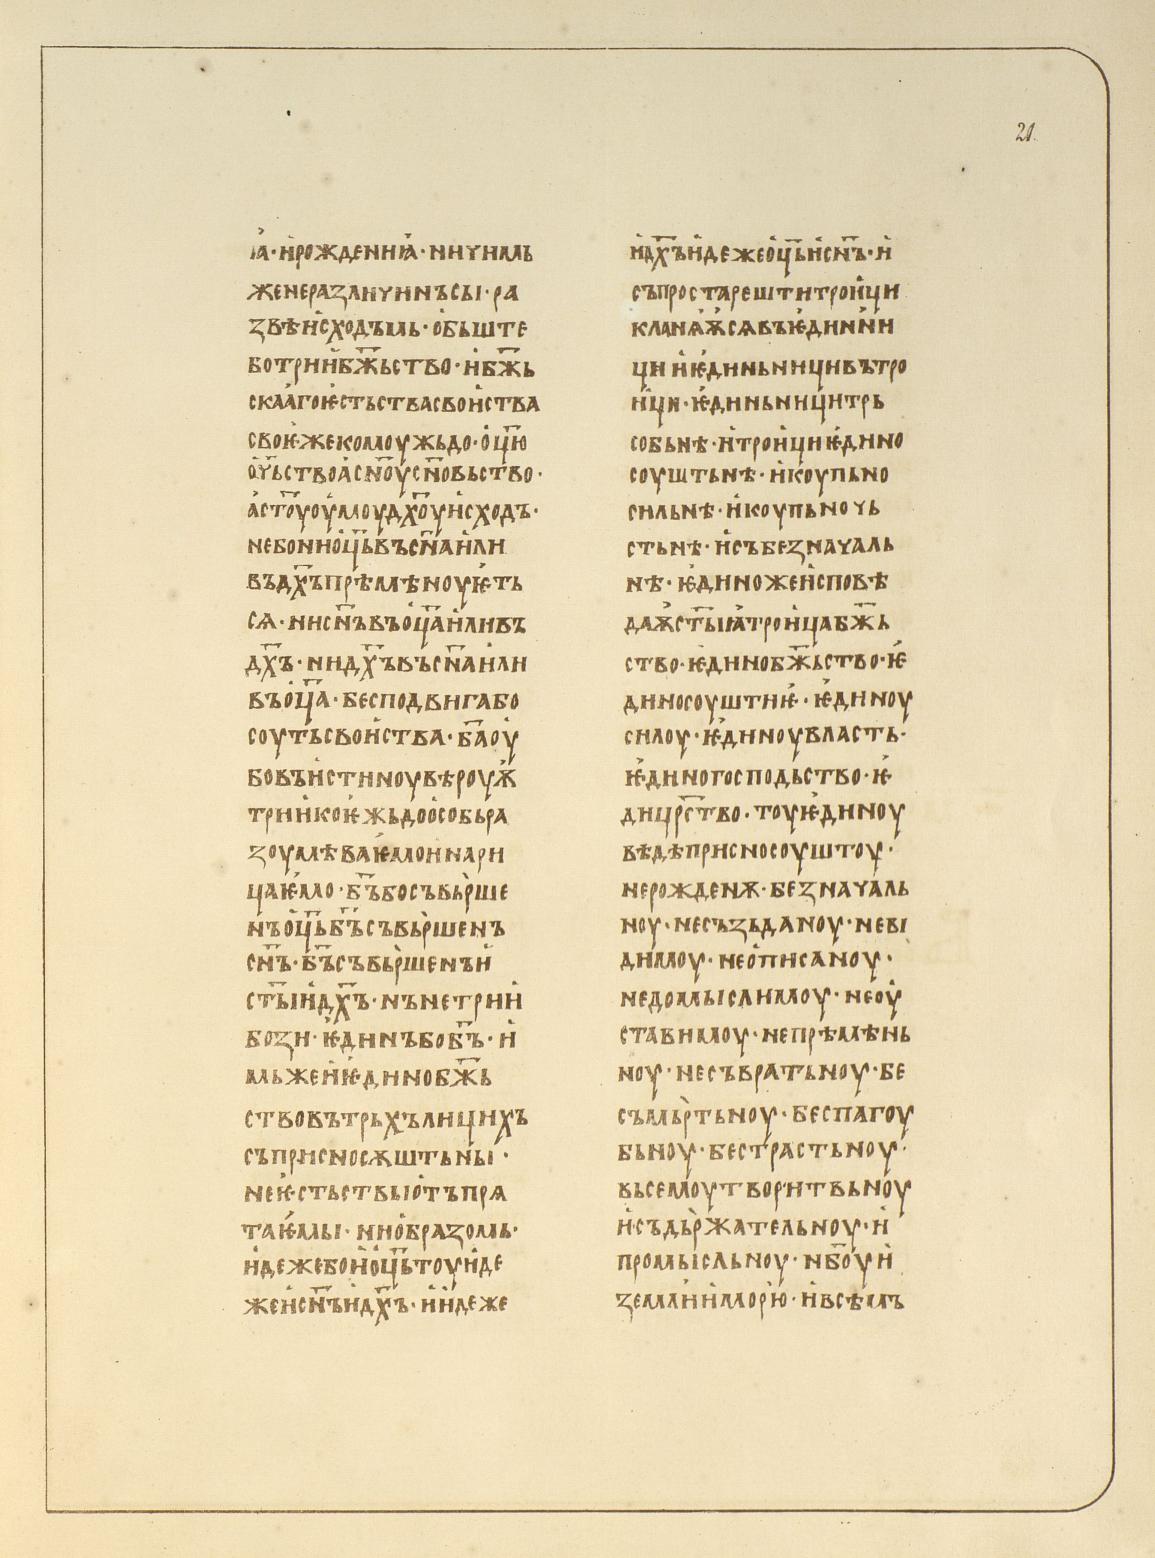 21.
ꙗ҆·и҆рождении҆ꙗ·ничимь
женеразличинъсы·ра
звѣи҆сходъмь·о҆бьште
ботрии҆бж҃ьство·и҆бж҃ь
скаа҆гоѥ҆стьствасвои҆ства
своѥ҆·жекомоужьдо·о҆ц҃ю
о҆ч҃ьствоа҆сн҃оусн҃овьство·
а҆ст҃оуоу҆моудх҃оуи҆сходъ·
небонио҆ц҃ьвъсн҃аи҆ли
въдх҃ъпрѣмѣноуѥ҆ть
сѧ·нисн҃ъвъо҆ц҃аи҆ливъ
дх҃ъ·нидх҃ъвъсн҃аи҆ли
въо҆ц҃а·бесподвигабо
соутьсвои҆ства·б҃аоу҆
бовъи҆стиноувѣроуѭ҆
трии҆коѥ҆жьдоо҆собьра
зоумѣваѥ҆мои҆нари
цаѥ҆мо·б҃ъбосъвьрше
нъо҆ц҃ьб҃ъсъвьршенъ
сн҃ъ·б҃ъсъвьршенъи҆
ст҃ыи҆дх҃ъ·нънетрии҆
бози·ѥ҆динъбоб҃ъ·и҆
мьжеи҆ѥ҆динобж҃ь
ствовътрьхълицихъ
съприсносѫштьны·
неѥ҆стьствыо҆тъпрѧ
таѥ҆мы·нио҆бразомь·
и҆дежебои҆о҆ц҃ьтоуи҆де
жеи҆сн҃ъи҆дх҃ъ·и҆и҆деже
и҆дх҃ъи҆дежео҆ц҃ьи҆сн҃ъ·и҆
съпростарештитрои҆ци
кланꙗ҆ѭ҆сѧвъѥ҆динни
ции҆ѥ҆диньницивътро
и҆ци·ѥ҆диньницитрь
собьнѣ·и҆трои҆циѥ҆дино
соуштьнѣ·и҆коупьно
сильнѣ·и҆коупьночь
стьнѣ·и҆събезначаль
нѣ·ѥ҆диножеи҆сповѣ
даѭ҆ст҃ыꙗ҆трои҆цабж҃ь
ство·ѥ҆динобж҃ьство·ѥ҆
диносоуштиѥ҆·ѥ҆диноу
силоу·ѥ҆диноувласть·
ѥ҆диногосподьство·ѥ҆
дицрс҃тво·тоуѥ҆диноу
вѣдѣприсносоуштоу·
нерожденѫ·безначаль
ноу·несъзьданоу·невы
димоу·нео҆писаноу·
недомыслимоу·неоу҆
ставимоу·непрѣмѣнь
ноу·несъвратьноу·бе
съмьртьноу·беспагоу
бьноу·бестрастьноу·
вьсемоутворитвьноу
и҆·съдьржательноу·и҆
промысльноу·нб҃оуи҆
земли҆и҆морю·и҆всѣмъ